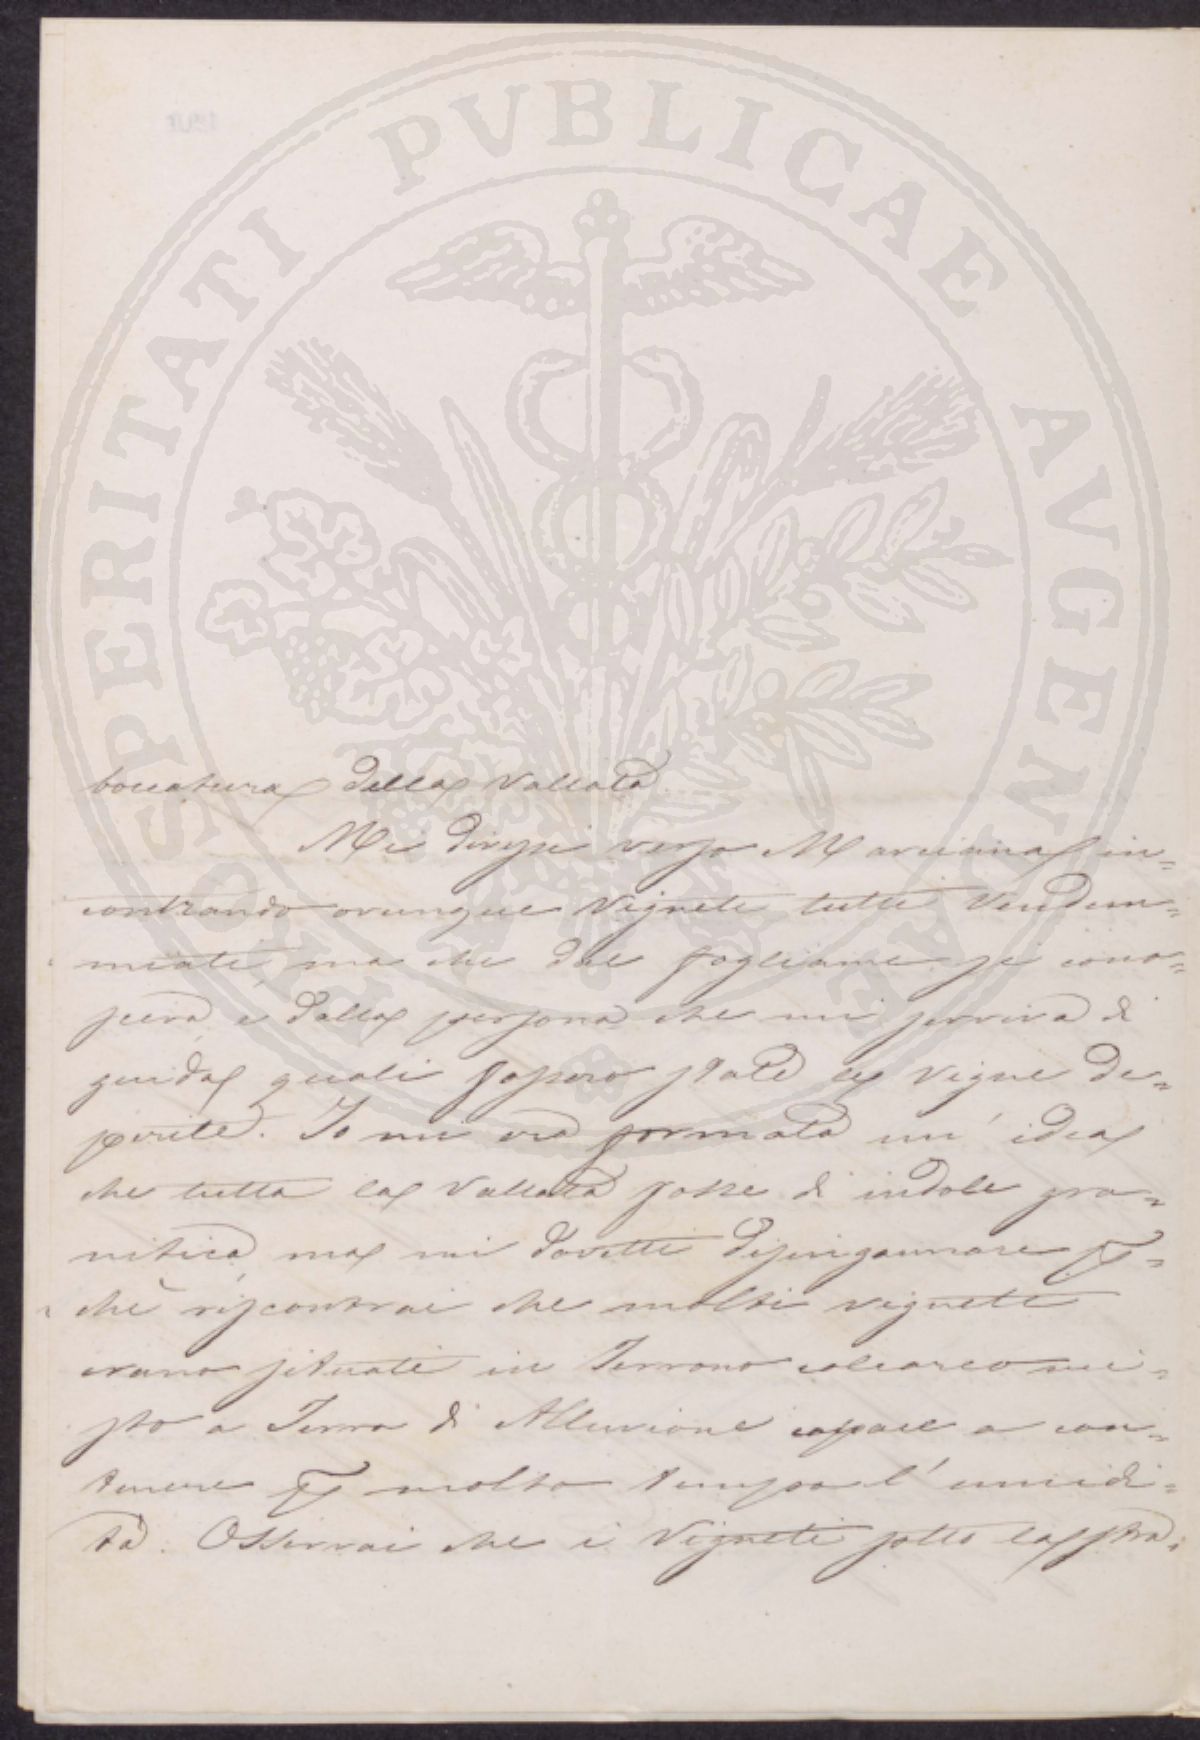 PROSPERITATI PVBLICAE AVGENDAE
boccatura della Vallata.
Mi diressi verso Marciana in=
contrando ovunque Vigneti tutti Vendem=
miati, ma che dal fogliame si cono=
sceva, e dalla persona che mi serviva di
guida quali fossero state le vigne de=
perite. Io mi era formata un' idea
che tutta la Vallata fosse di indole gra=
nitica, ma mi dovetti disingannare p=
chè riscontrai che molti vigneti
erano situati in Terreno calcareo mi=
sto a Terra di Alluvione capace a con=
tenere p molto tempo l' umidi=
tà. Osservai che i Vigneti sotto la stra=